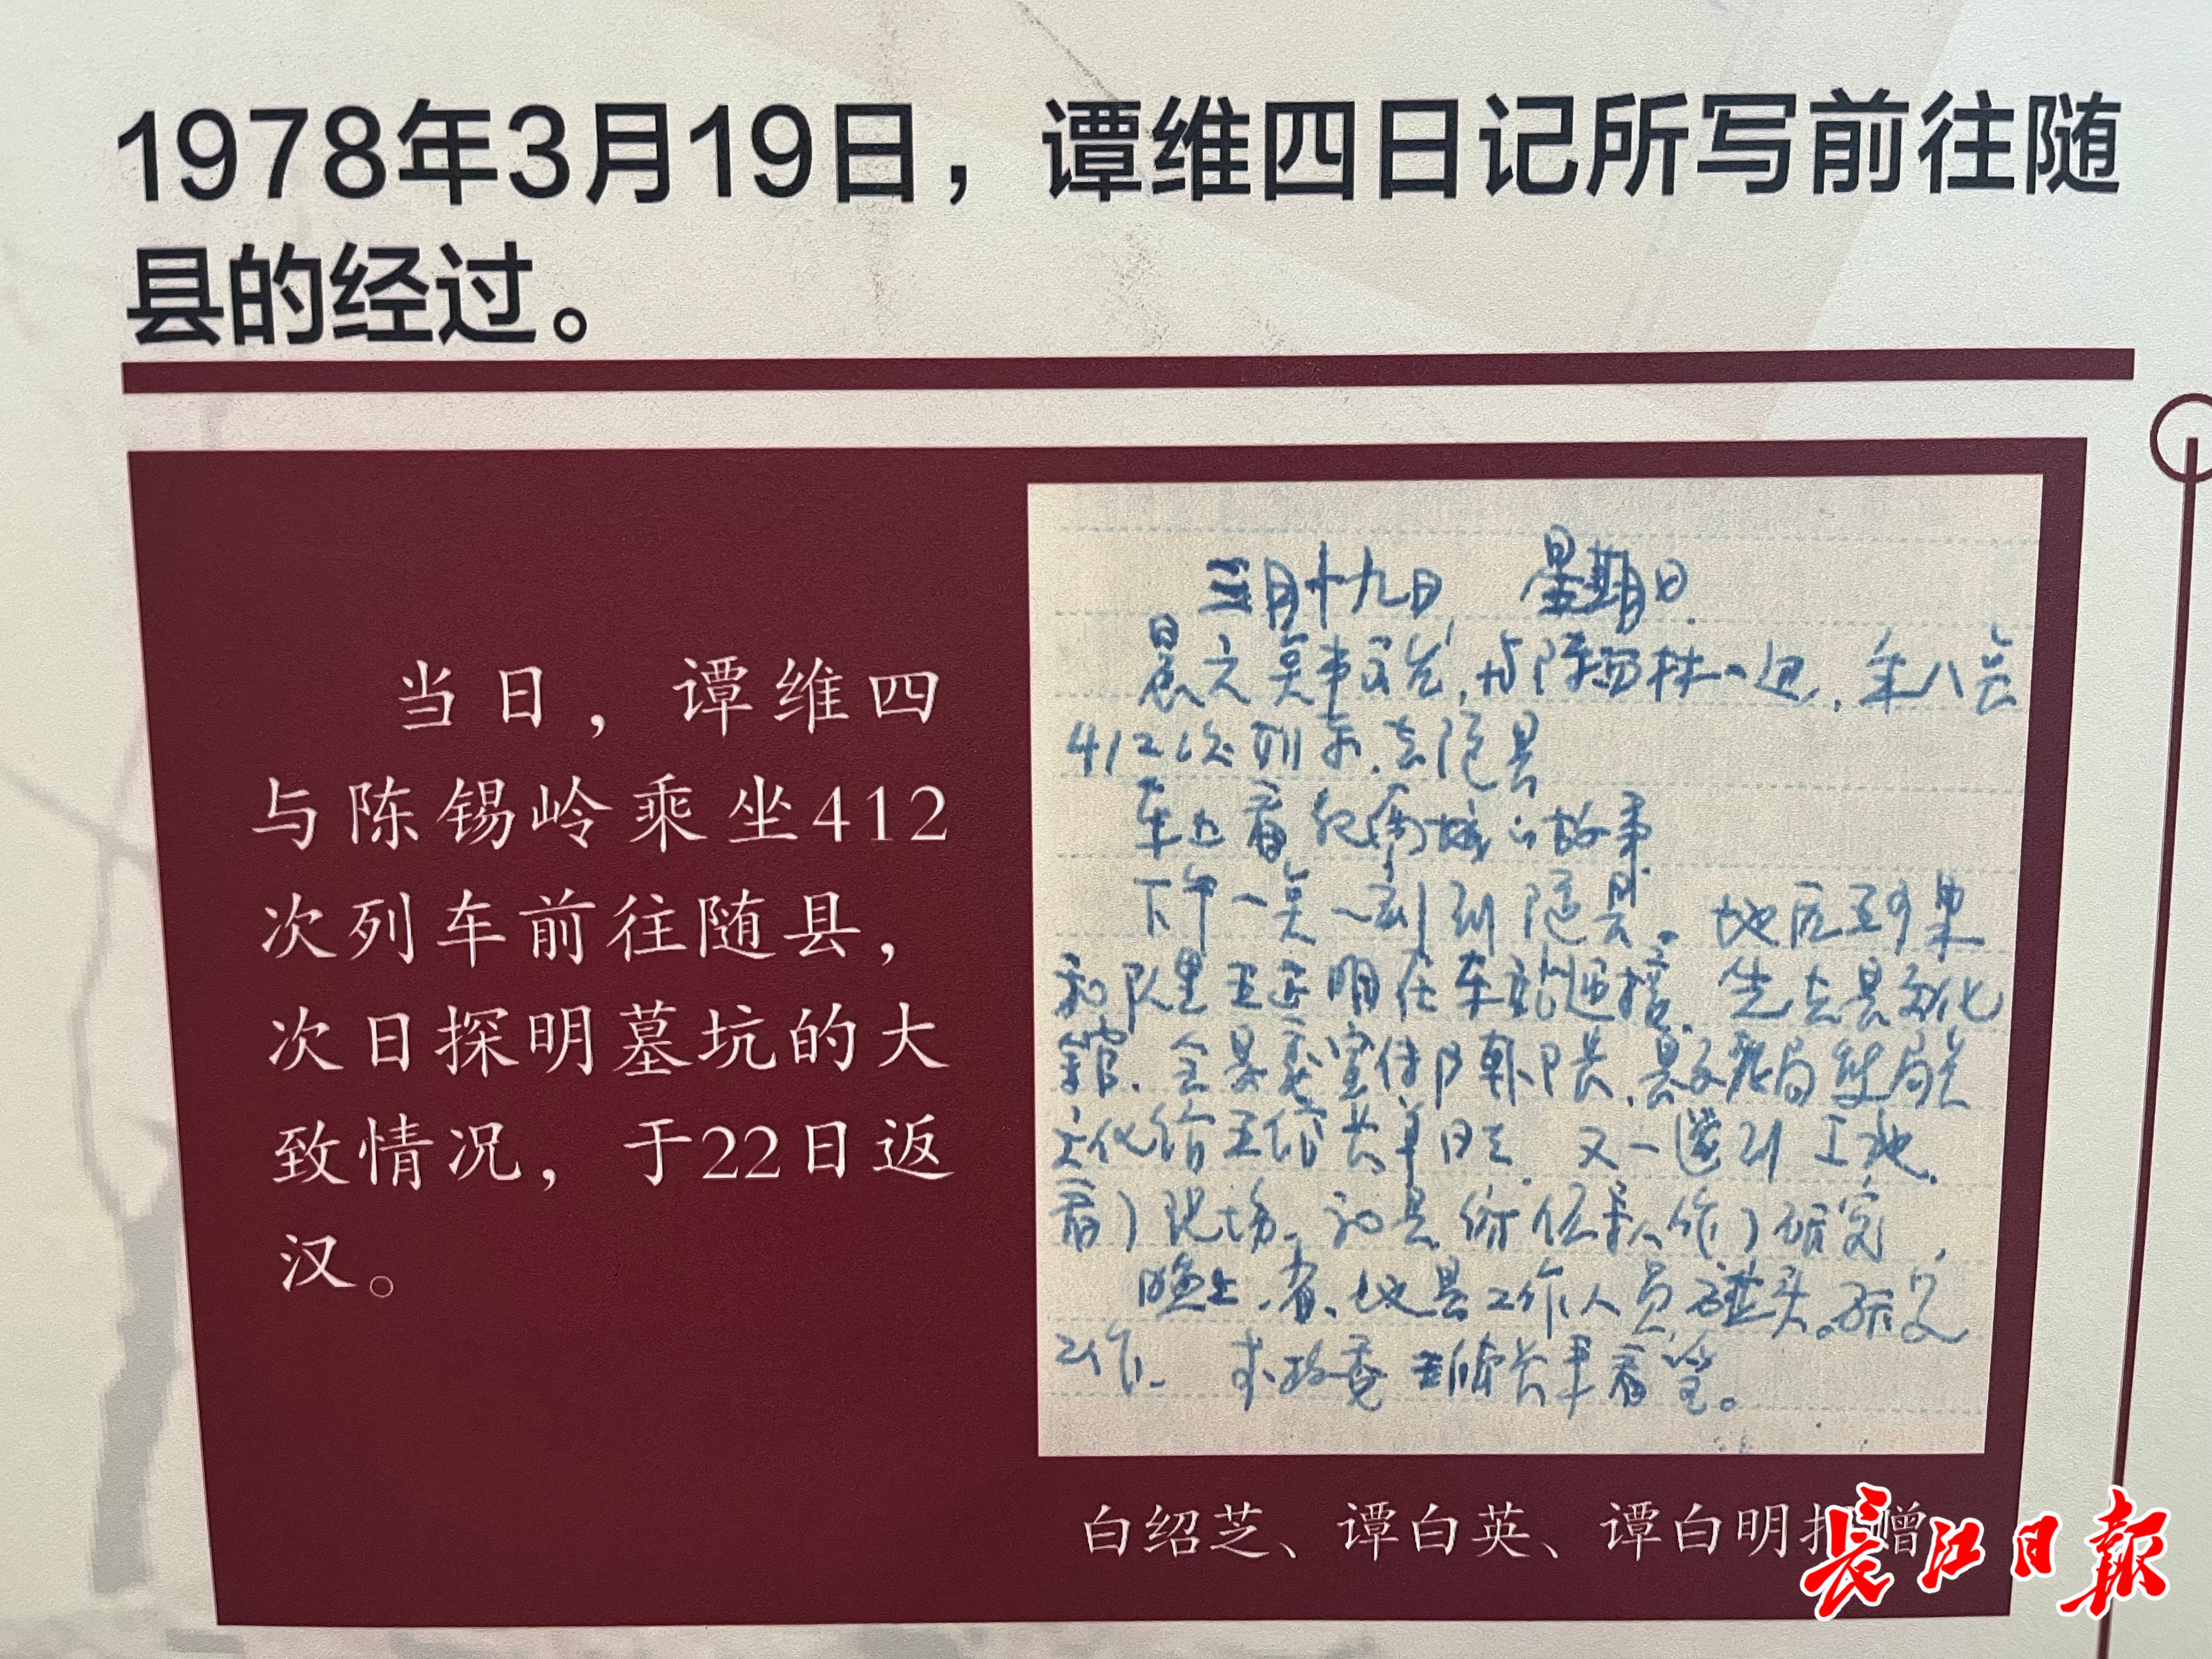 1978年3月19日，谭维四日记所写前往随
县的经过。
当日，谭维四
与陈锡岭乘坐412
次列车前往随县，
次日探明墓坑的大
致情况，于22日返
汉。
三月十九日 星期日
晨六点半出发，与陈西林一道，乘八点
412次列车，去随县
车上看的故事
下午一点一刻到随县。地区
和队里王正明在车站迎接。先去县文化
馆，会县委宣传部韩部长，县文教局局长
文化馆王馆长等同志。又一道到工地
看了现场，和县领导作了研究，
晚上，省、地、县工作人员碰头，研究
工作。
白绍芝、谭白英、谭白明捐赠
长江日報